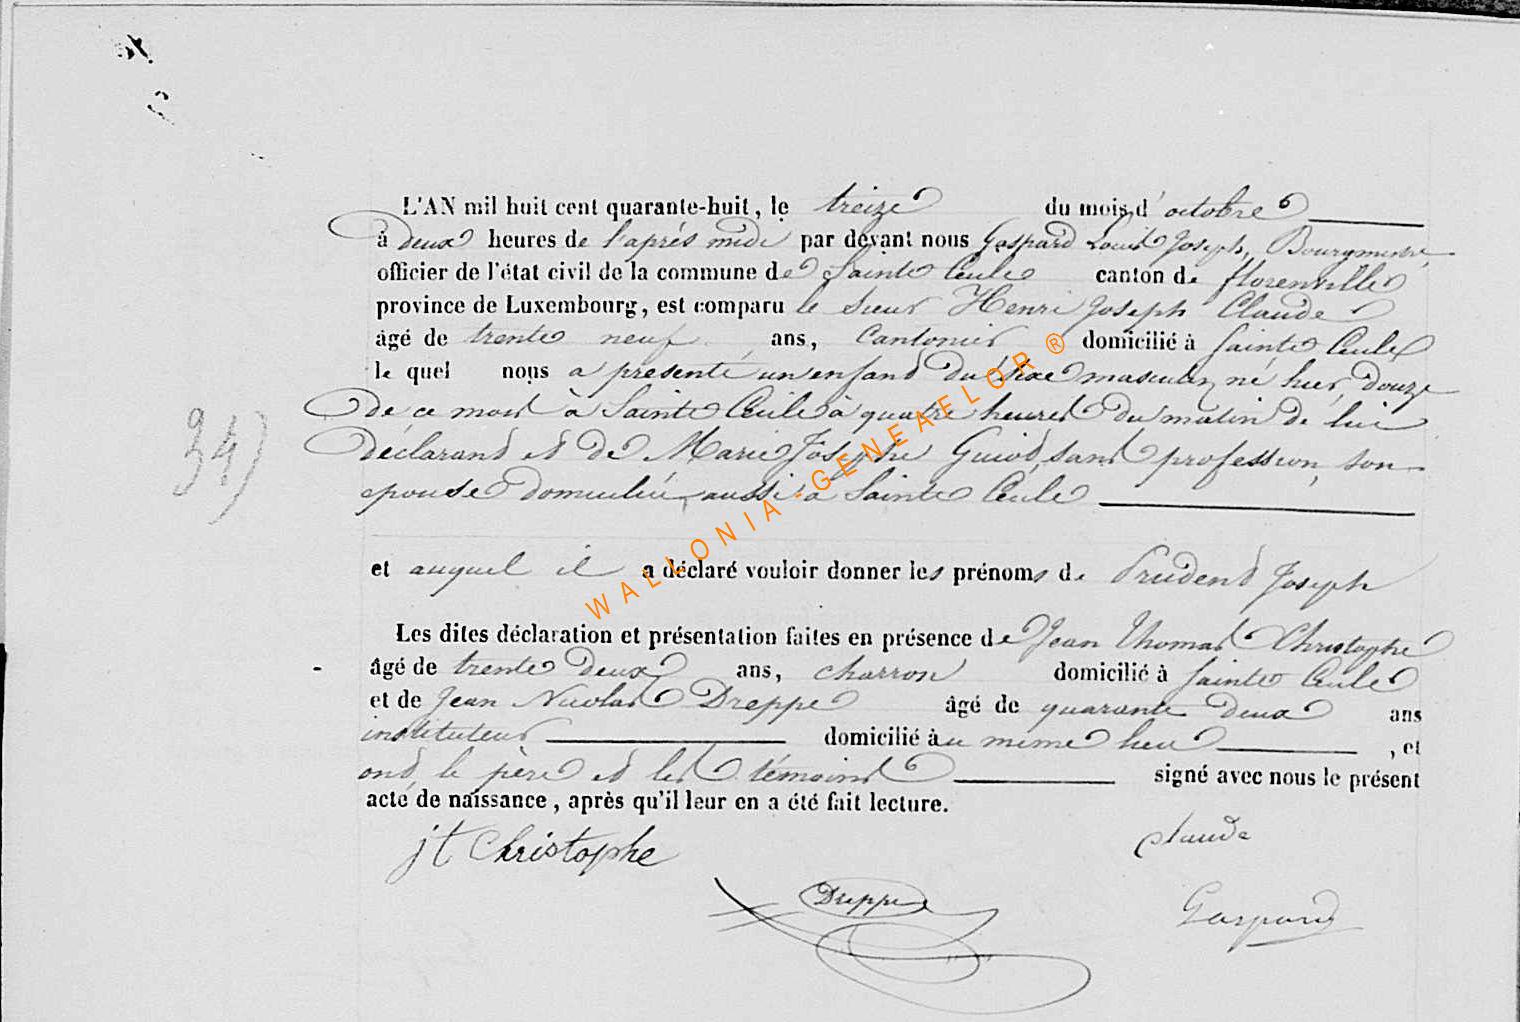 L'AN mil huit cent quarante-huit, le treize du mois d'octobre
à deux heures de l'après midi par devant nous Gaspard Louis Joseph, Bourgmestre,
officier de l'état civil de la commune de Sainte Cecile canton de florenville
province de Luxembourg, est comparu le sieur Henri Joseph Claude
âgé de trente neuf ans, Cantonier domicilié à Sainte Cecile
le quel nous a présenté un enfand du sexe masculin, né hier, douze
de ce mois à Sainte Cecile à quatre heures du matin de lui
34)
déclarand et de Marie Josephe Guiot, sans profession, son
epouse domiciliée aussi à Sainte Cecile
et auquel il a déclaré vouloir donner les prénoms de Prudend Joseph
Les dites déclaration et présentation faites en présence de Jean Thomas Christophe
âgé de trente deux ans, charron domicilié à Sainte Cecile
et de Jean Nicolas Dreppe âgé de quarante deux ans
instituteur domicilié au même lieu, et
ond le père et les témoins signé avec nous le présent
acte de naissance, après qu'il leur en a été fait lecture.
jt Christophe
Claude
Dreppe
Gaspard
WALLONIA-GENEAFLOR ®